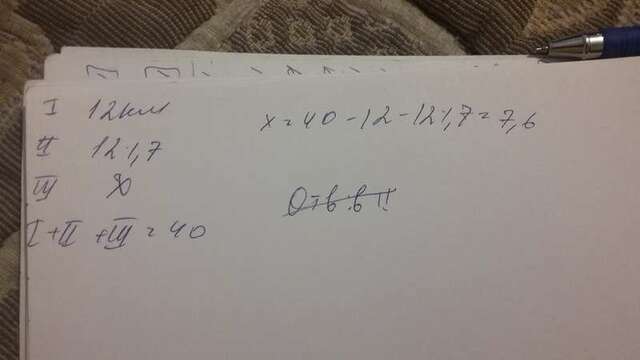 I 12км
II 12·1,7
III x
I + II + III = 40
x = 40 - 12 - 12·1,7 = 7,6